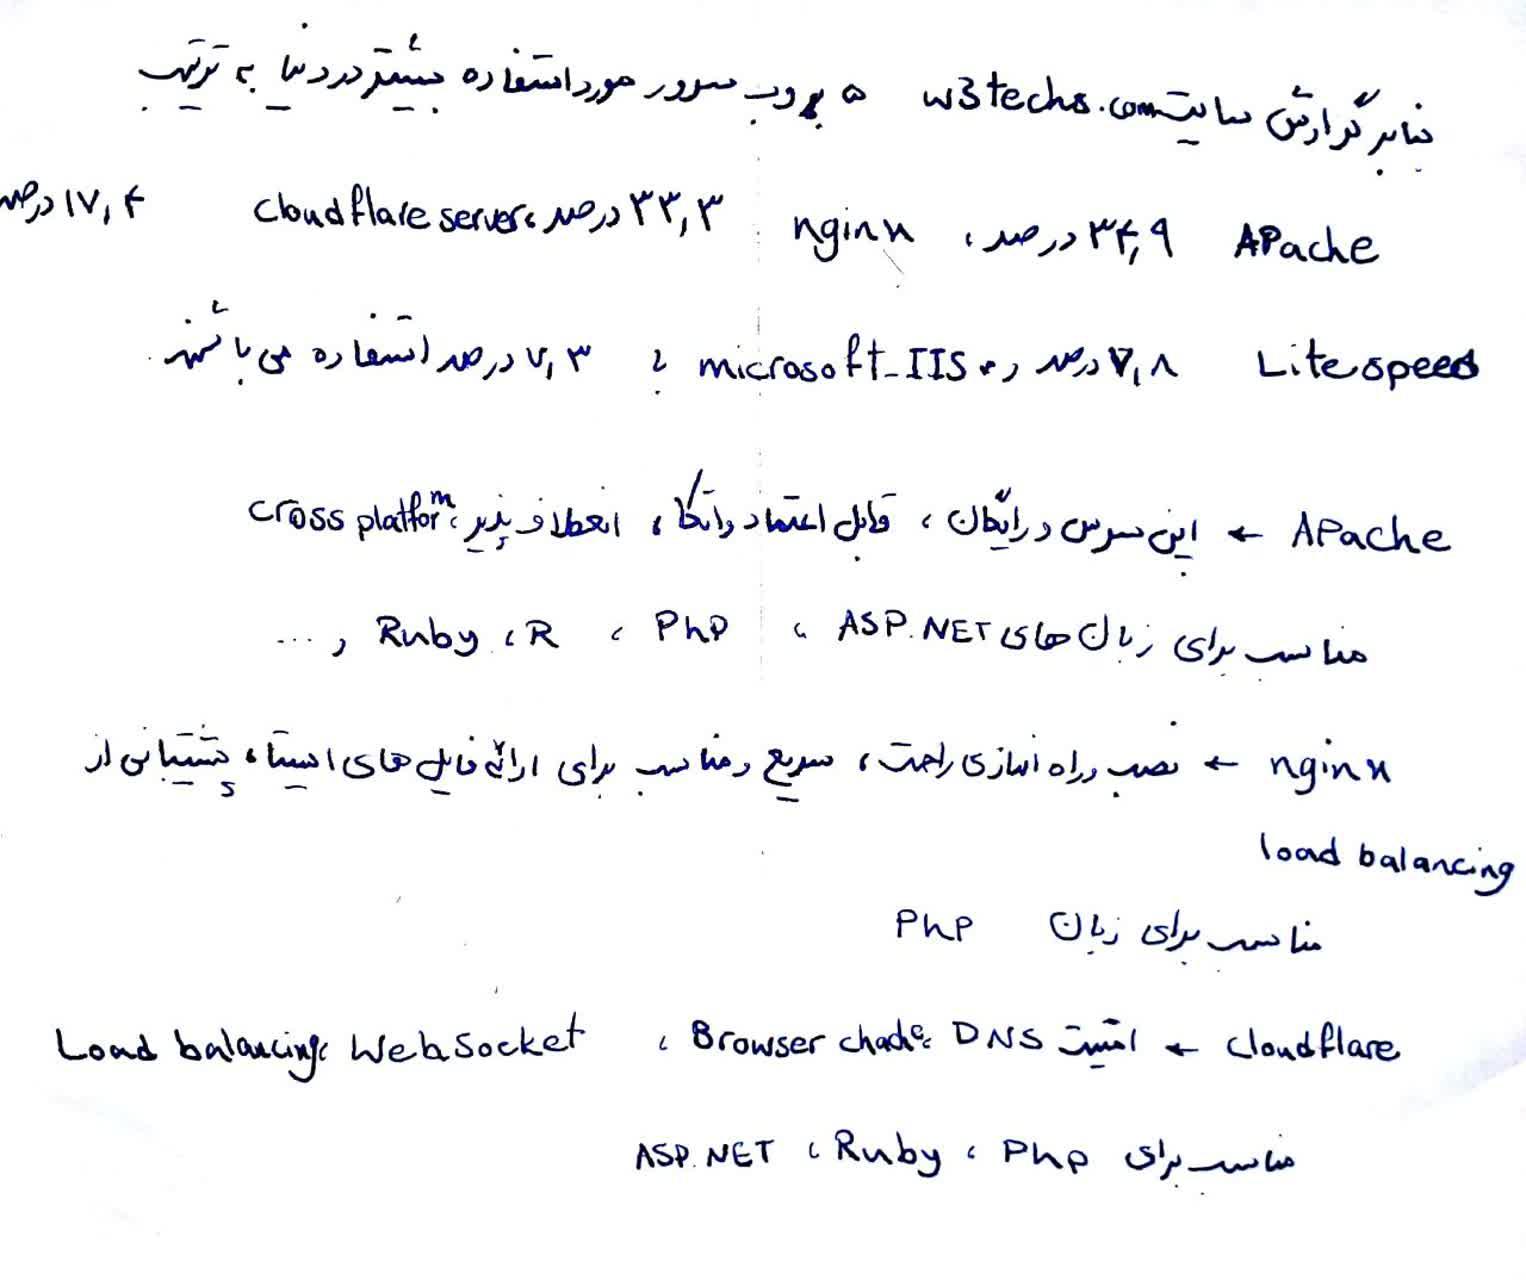 بنابر گزارش سایت w3techs.com ۵ وب سرور مورد استفاده بیشتر در دنیا به ترتیب
Apache ۳۴,۹ درصد، nginx ۳۳,۳ درصد، cloudflare server ۱۷,۴ درصد
Litespeed ۷,۸ درصد و microsoft_IIS با ۷,۳ درصد استفاده می باشند.
Apache ← اپن سورس و رایگان، قابل اعتماد و اتکا، انعطاف پذیر، cross platform
مناسب برای زبان های ASP.NET، Php، R، Ruby و ...
nginx ← نصب و راه اندازی راحت، سریع و مناسب برای ارائه فایل های ایستا، پشتیبانی از
load balancing
مناسب برای زبان Php
cloudflare ← امنیت DNS، Browser chache، WebSocket، Load balancing
مناسب برای Php، Ruby، ASP.NET